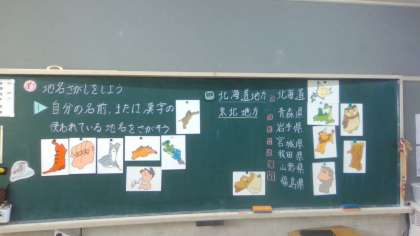 地名さがしをしよう
自分の名前、または漢字の
使われている地名をさがそう
北海道地方
東北地方
北海道
青森県
岩手県
宮城県
秋田県
山形県
福島県